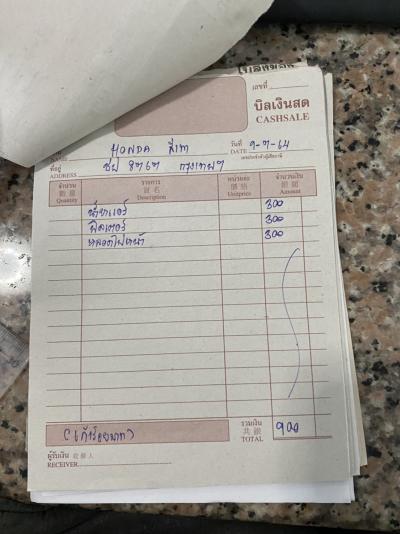 เลขที่
บิลเงินสด
CASHSALE
HONDA สีเทา
วันที่ 9-7-64
DATE
ที่อยู่ ชป 8767 กรุงเทพฯ
ADDRESS
เลขประจำตัวผู้เสียภาษี
จำนวน รายการ หน่วยละ จำนวนเงิน
數量 貨名 價格 銀碼
Quantity Description Unitprice Amount
300
ฟิลเตอร์ 300
หลอดไฟหน้า 300
(เก้าร้อยบาท) รวมเงิน 900
共銀
TOTAL
ผู้รับเงิน 收銀人
RECEIVER